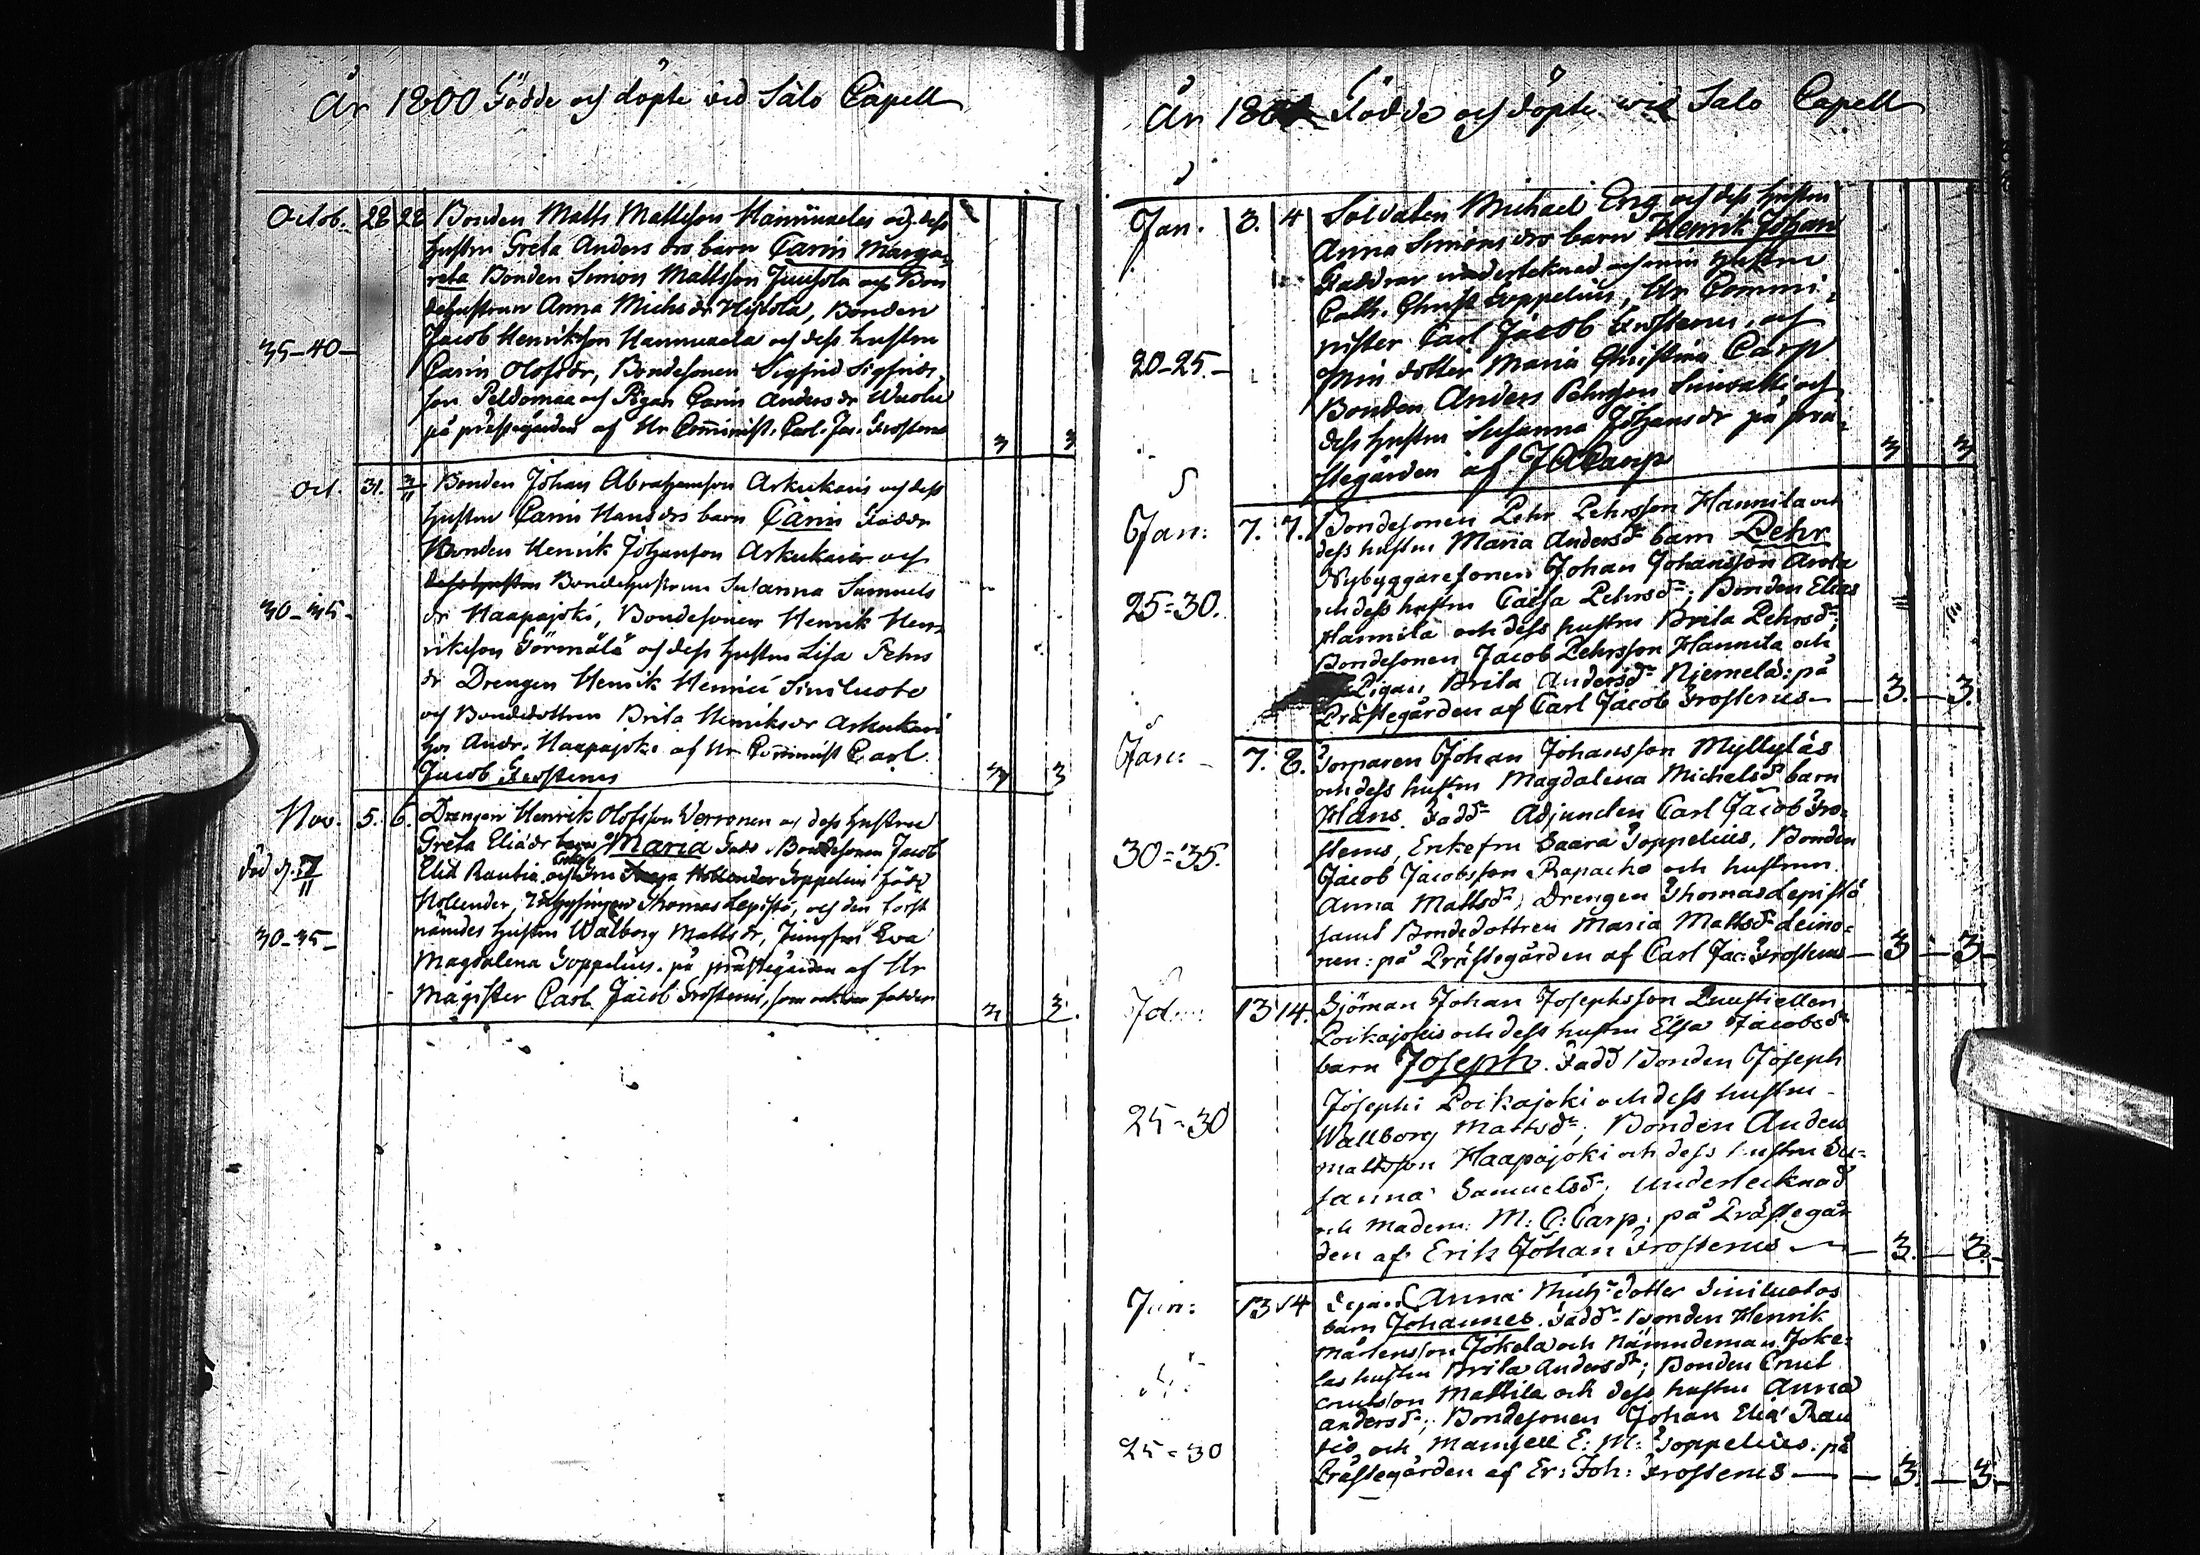 År 1800 Födde och döpte vid Salo Capell
Octob. 28 28 Bonden Matts Mattsson Hannuxelas och dess
hustru Greta Anders drs barn Carin Marga-
reta Bonden Simon Mattsson Junsola och Bon
dehustrun Anna Michs dr Hijtola, Bonden
Jacob Henriksson Hannuxela och dess hustru
35-40- Carin Olofsdr, Bondesonen Sigfrid Sigfrids
son Peldomaa och Pigan Carin Anders dr
på prestegården af Hr Com̄inist. Carl. Jac. Frosterus
3 3
Oct. 31. 3/11 Bonden Johan Abrahamson Arkukaris och dess
hustru Carin Hans drs barn Carin Faddr
Bonden Henrik Johanson Arkukari och
dess hustru Bondehustrun Susanna Samuels
30-35- dr Haapajoki, Bondesonen Henrik Hen-
rikson Görmälä och dess hustru Lisa Pehrs
dr Drengen Henrik Henrici Siniluoto
och Bondedottren Brita Henriksdr Arkukari
hos Andr. Haapajoki af Hr Com̄inist Carl
Jacob Frosterus 3 3
Nov. 5. 6. Drengen Henrik Olofsson Verronen och dess hustrus
Greta Eliædr barn Maria Fadd. Bondesonen Jacob
död d. 17/11 Eliæ Rautio, och Fru Hollender Toppelius född
Hollender, Thomas Lepistö, och den först
30-35- nämdes hustru Walborg Matts dr, Jungfru Eva
Magdalena Toppelius. på prästegården af Hr
Magister Carl Jacob Frosterus, som ock var fadder
3 3.
År 1801 Födde och döpte wid Salo Capell
Jan. 3. 4 Soldaten Michael Eng och dess hustru
Anna Simons drs barn Henrik Johan
Faddrar undertecknad och min hustru
Cath. Christ Toppelius, Hr Commi-
nister Carl Jacob Frosterus och
20-25.- Min dotter Maria Christina Carp
Bonden Anders Pehrsson och
dess hustru Susanna Johans dr på prä-
stegården af J Carp 3 3
Jan: 7. 7. Bondesonen Pehr Pehrsson Hannila och
dess hustru Maria Andersdr barn Pehr
Nybyggaresonen Johan Johansson Arola
25=30. och dess hustru Caisa Pehrsdr; Bonden Elias
Hannila och dess hustru Brita Pehrsdr;
Bondesonen Jacob Pehrsson Hannila och
Pigan Brita Andersdr Niemelä: på
Prästegården af Carl Jacob Frosterus — 3. — 3.
Jan: - 7. 8. Torparen Johan Johansson Myllyläs
och dess hustru Magdalena Michelsdr barn
Hans. Faddr Adjuncten Carl Jacob Fro-
sterus, Enkefru Saara Toppelius, Bonden
30=35. Jacob Jacobsson Rapacko och hustrun
Anna Mattsdr, Drengen Thomas Lepistö
samt Bondedottren Maria Mattsdr Leino-
nen: på Prästegården af Carl Jac: Frosterus — 3 — 3 -
13 14. Sjöman Johan Josephsson
Poikajokis och dess hustru Elsa Jacobsdr
barn Joseph. Fadd Bonden Joseph
Josephi Poikajoki och dess hustru
25=30 Wallborg Mattsdr; Bonden Anders
Mattsson Haapajoki och dess hustru Su-
sanna Samuelsdr; undertecknad
och Madem: M: C: Carp; på Prästegår
den af Erik Johan Frosterus — 3. — 3.
Jan: 13 14 Anna Mich: dotter Siniluotos
barn Johannes. Faddr Bonden Henrik
Mårtensson Jokela och Nämndeman Joke-
las hustru Brita Andersdr; Bonden Cnut
Cnutsson Mattila och dess hustru Anna
Andersdr; Bondesonen Johan Eliæ Rau
25=30 tio och Mamsell E: M: Toppelius. på
Prästegården af Er: Joh: Frosterus — 3. — 3.